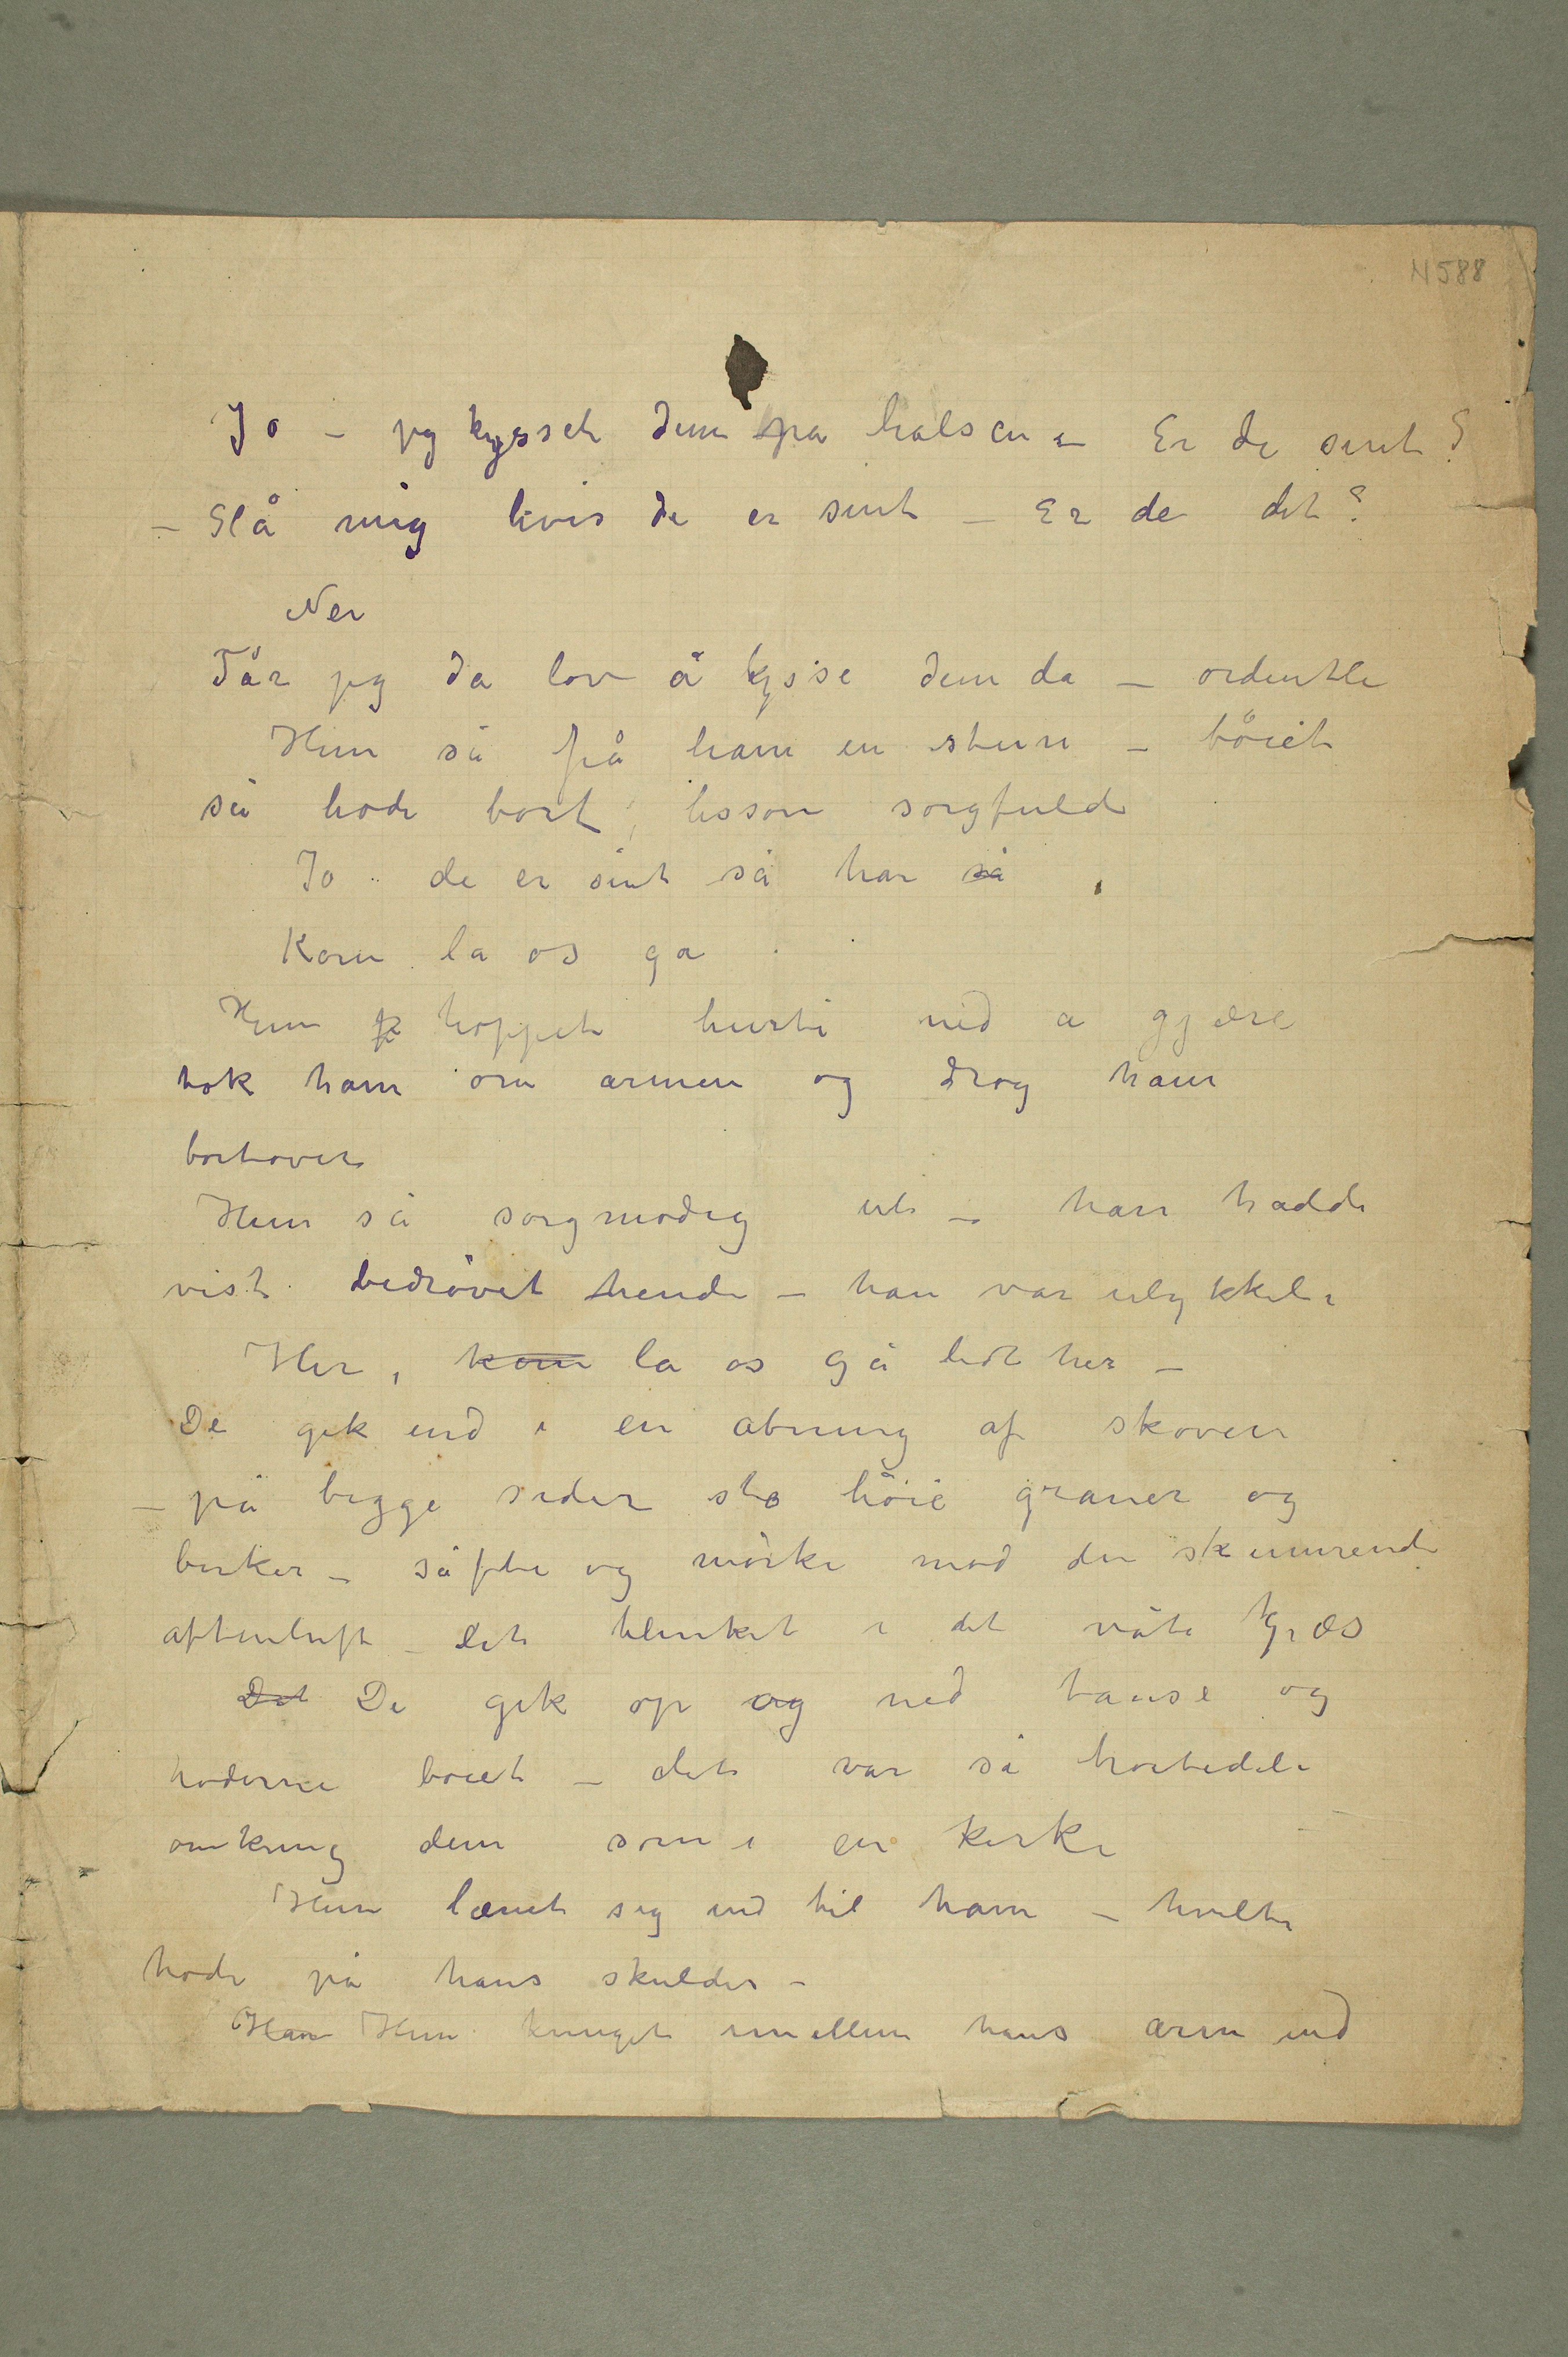 N 588
Jo – jeg kysset dem på halsen – Er de sint?
– Slå mig hvis de er sint – Er de det?
Nei
Får jeg da lov å kysse dem da – ordentli
Hun så på ham en stun – bøiet
så hode bort, lisson sorgfuld
Jo – de er sint så han så
Kom la os gå
Hun p hoppet hurti ned a gjære
tok ham om armen og drog ham
bortover
Hun så sorgmodig ut – han hadde
vist bedrøvet hende – han var ulykkeli
Her, kom la os gå lidt her –
De gik ind i en åbning af skoven
– på begge sider sto høie graner og
birker – såfte og mørke mod den skimrende
aftenluft – det blinket i det våte græs
Det De gik op og ned tause og
hoderne bøiet – det var så høitideli
omkring dem som i en kirke
Hun lænet sig ind til ham – hvilte
hode på hans skulder –
Han Hun tvinget imellem hans arm ind